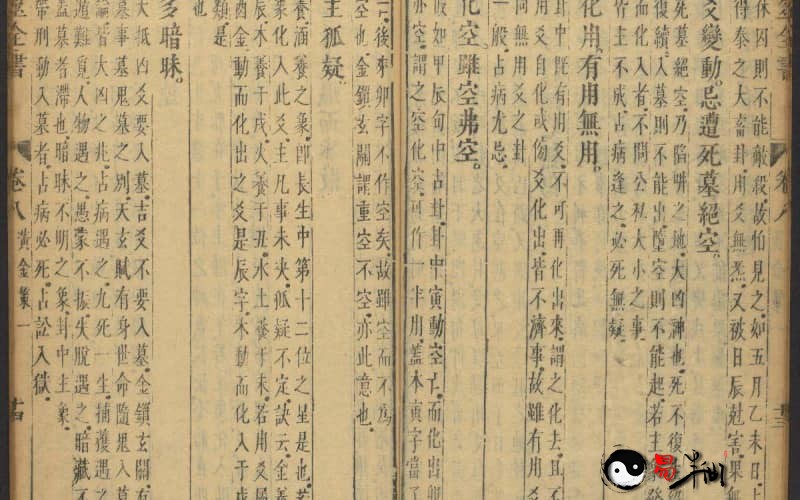 休囚則不能敵殺故怕見之如五月乙未日
得泰之大畜卦用爻無炁又被日辰尅害果
爻變動忌遭死墓絕空
死墓絕空乃陷阱之地大凶神也死不復
復續入墓則不能出墮空則不能起若主象發
而化入者不問公私大小之事
皆主不成占病逢之必死無疑
化用有用無用
卦中既有用爻不可再化出來謂之化去且不
用爻自化或傷爻化出皆不濟事故雖有用
同無用爻之卦
一般占病尤忌
化空雖空弗空
假如甲辰旬中占卦卦中寅動空亡而化出卯
亦空謂之空化空可作一半用蓋本寅字當了
後來卯字不作空矣故雖空而不為
也金鎖玄關謂重空不空亦此意也
主狐疑
養涵養之象卽長生中第十二位之星是也
象化入此爻主凡事未決狐疑不定訣云金養
辰木養于戌火養于丑水土養于未若用爻屬
酉金動而化出之爻是辰字木動而化入于戌
類是
也
多暗昧
大抵凶爻要入墓吉爻不要入墓金鎖玄關有
墓事墓鬼墓之別天玄賦有身世命隨鬼入墓
論皆大凶之兆占病遇之九死一生捕獲遇之
遁難覓人物遇之愚蒙不振失脫遇之暗藏不
蓋墓者滯也暗昧不明之象卦中主象
帶刑動入墓者占病必死占訟入獄
全書 卷八 黃金策一 十四